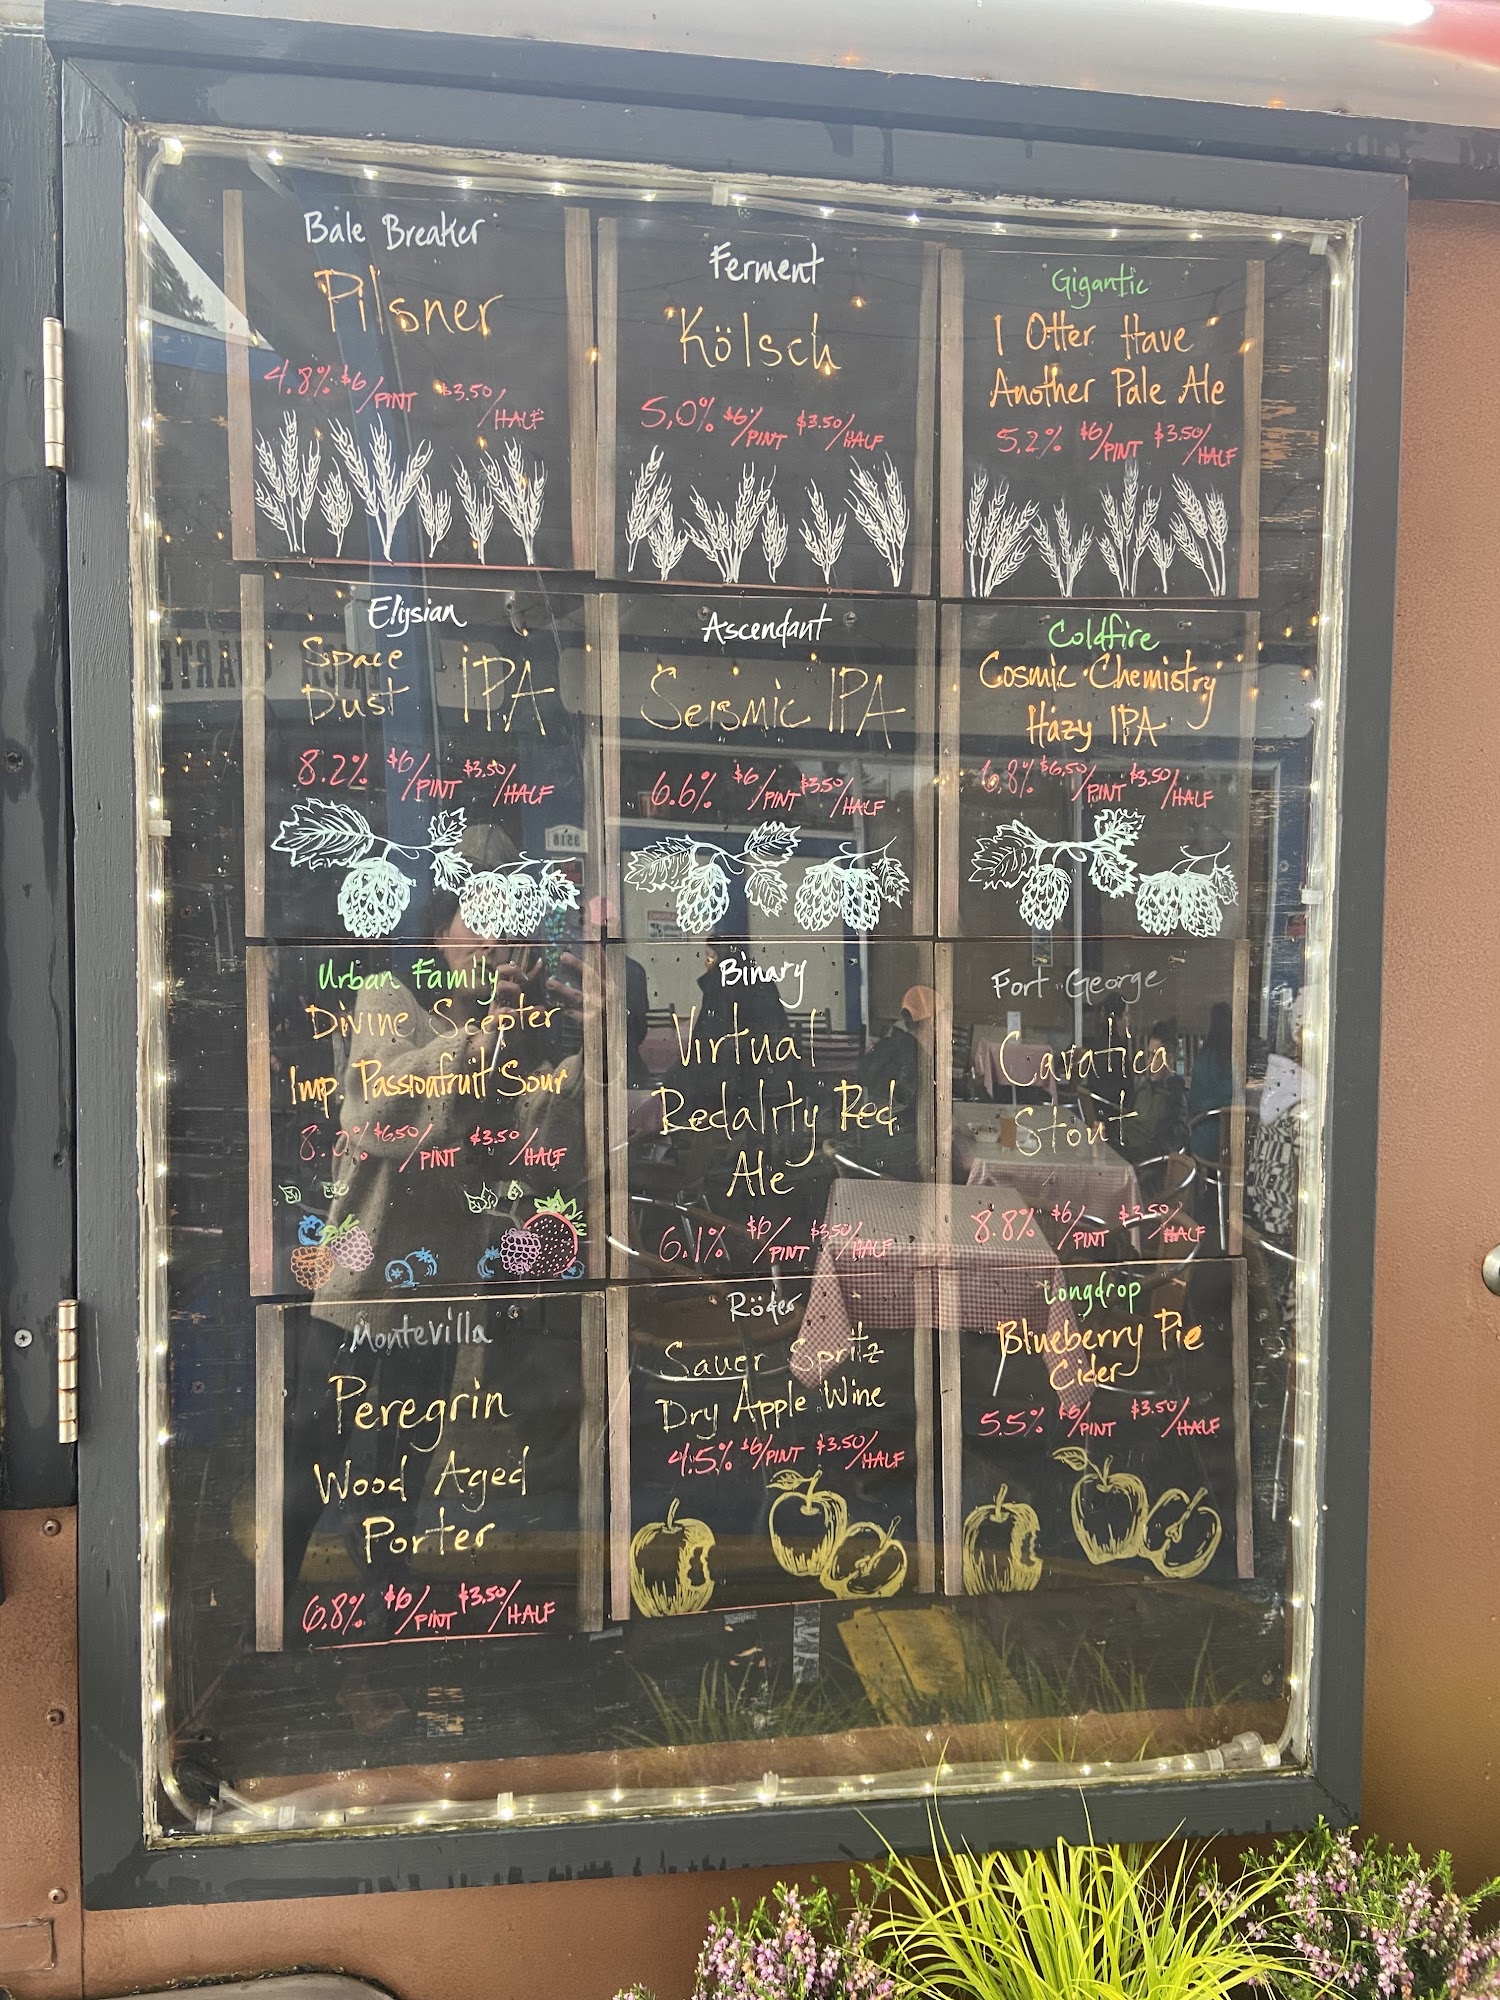 Bale Breaker
Pilsner
4.8% $6/PINT $3.50/HALF
Ferment
Kölsch
5.0% $6/PINT $3.50/HALF
Gigantic
I Otter Have
Another Pale Ale
5.2% $6/PINT $3.50/HALF
Elysian
Space
Dust IPA
8.2% $6/PINT $3.50/HALF
Ascendant
Seismic IPA
6.6% $6/PINT $3.50/HALF
Coldfire
Cosmic Chemistry
Hazy IPA
6.8% $6.50/PINT $3.50/HALF
Urban Family
Divine Scepter
Imp. Passionfruit Sour
8.0% $6.50/PINT $3.50/HALF
Binary
Virtual
Redality Red
Ale
6.1% $6/PINT $3.50/HALF
Fort George
Cavatica
Stout
8.8% $6/PINT $3.50/HALF
Montevilla
Peregrin
Wood Aged
Porter
6.8% $6/PINT $3.50/HALF
Röder
Sauer Spritz
Dry Apple Wine
4.5% $6/PINT $3.50/HALF
Longdrop
Blueberry Pie
Cider
5.5% $6/PINT $3.50/HALF